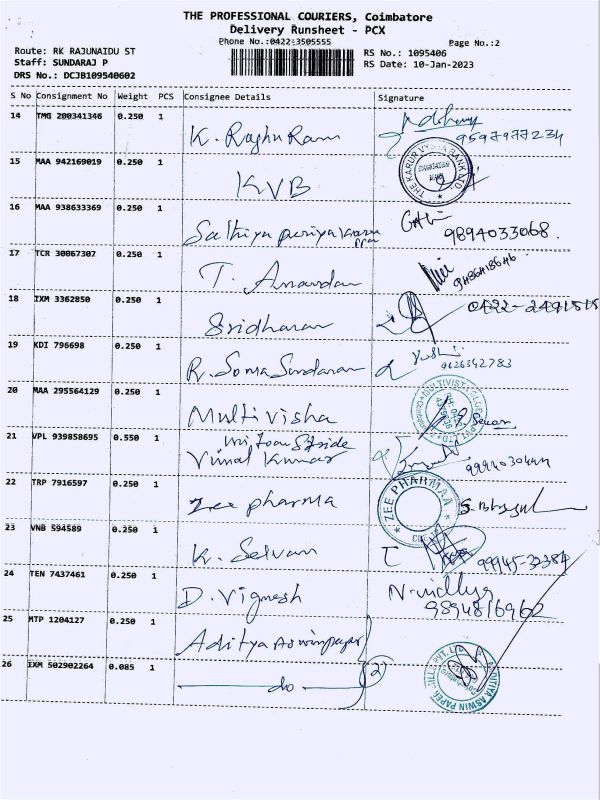 THE PROFESSIONAL COURIERS, Coimbatore
Delivery Runsheet - PCX
Phone No.:0422-3505555
Page No.:2
Route: RK RAJUNAIDU ST
RS No.: 1095406
Staff: SUNDARAJ P
RS Date: 10-Jan-2023
DRS No.: DCJB109540602
S No Consignment No Weight PCS Consignee Details Signature
14 TMG 200341346 0.250 1
K. Raghu Ram
9597977234
15 MAA 942169019 0.250 1
KVB
THE KARUR VYSYA BANK LTD.
16 MAA 938633369 0.250 1
9894033068.
17 TCR 30067307 0.250 1
T. Anandan
18 IXM 3362850 0.250 1
Sridharan
0422-2491515
19 KDI 796698 0.250 1
R. Soma Sundaran
9626342783
20 MAA 295564129 0.250 1
Multivisha
21 VPL 939858695 0.550 1
Vimal Kumar
22 TRP 7916597 0.250 1
Zee pharma
ZEE PHARMAA
23 VNB 594589 0.250 1
K. Selvam
24 TEN 7437461 0.250 1
D. Vignesh
N. vidhya
9894816962
25 MTP 1204127 0.250 1
26 IXM 502902264 0.085 1
do
(2)